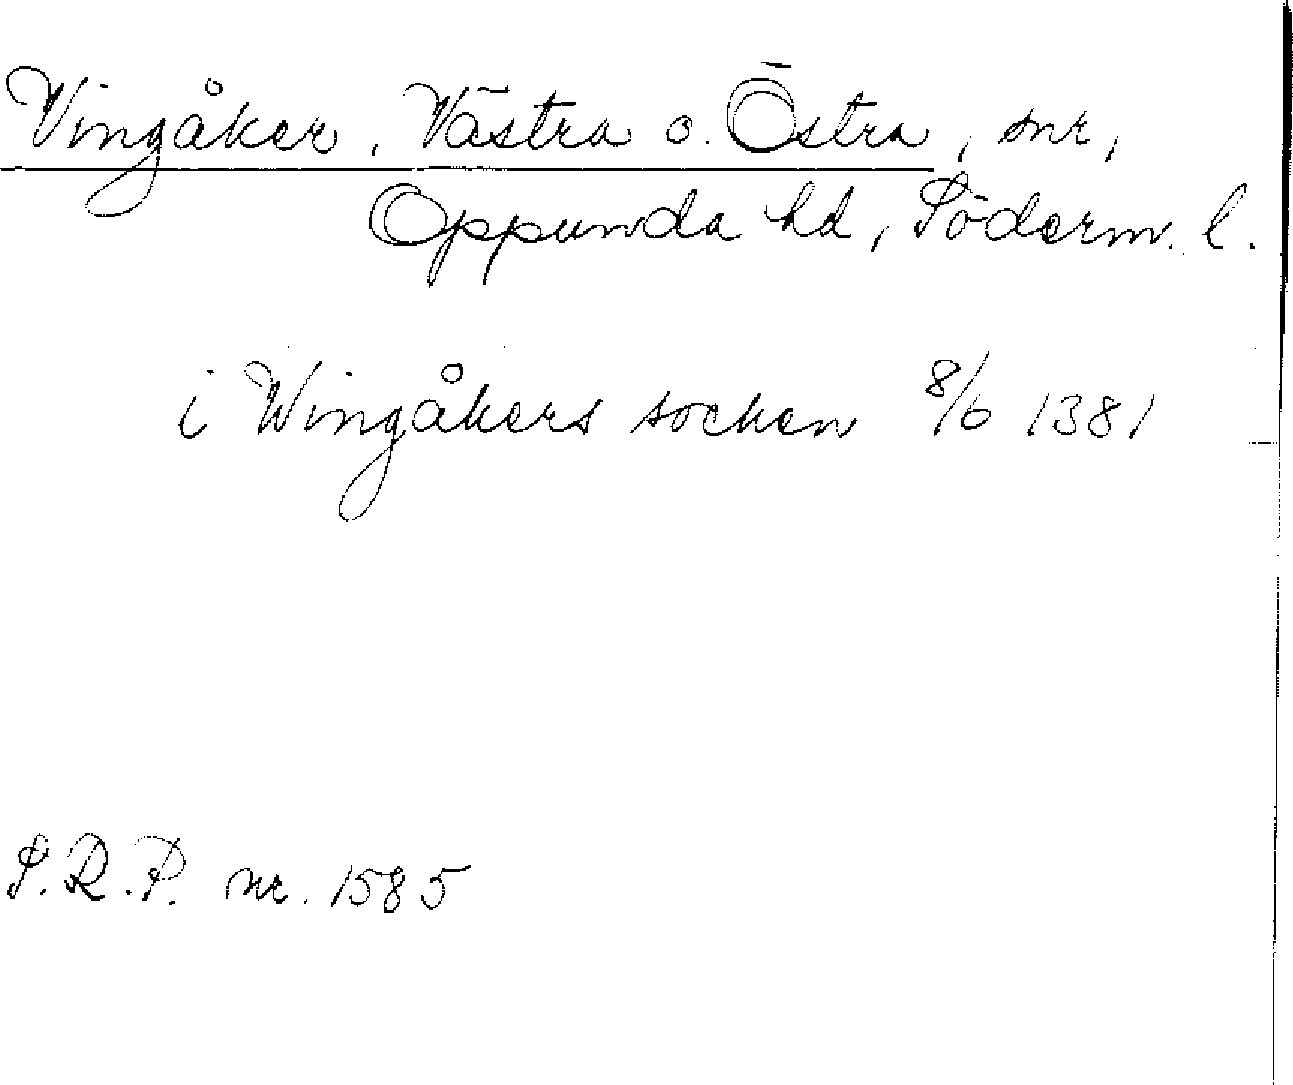 Vingåker, Västra o. Östra, snr,
Oppunda hd, Söderm. l.
i Wingåkers socken 8/6 1381
S.R.P. nr. 1585